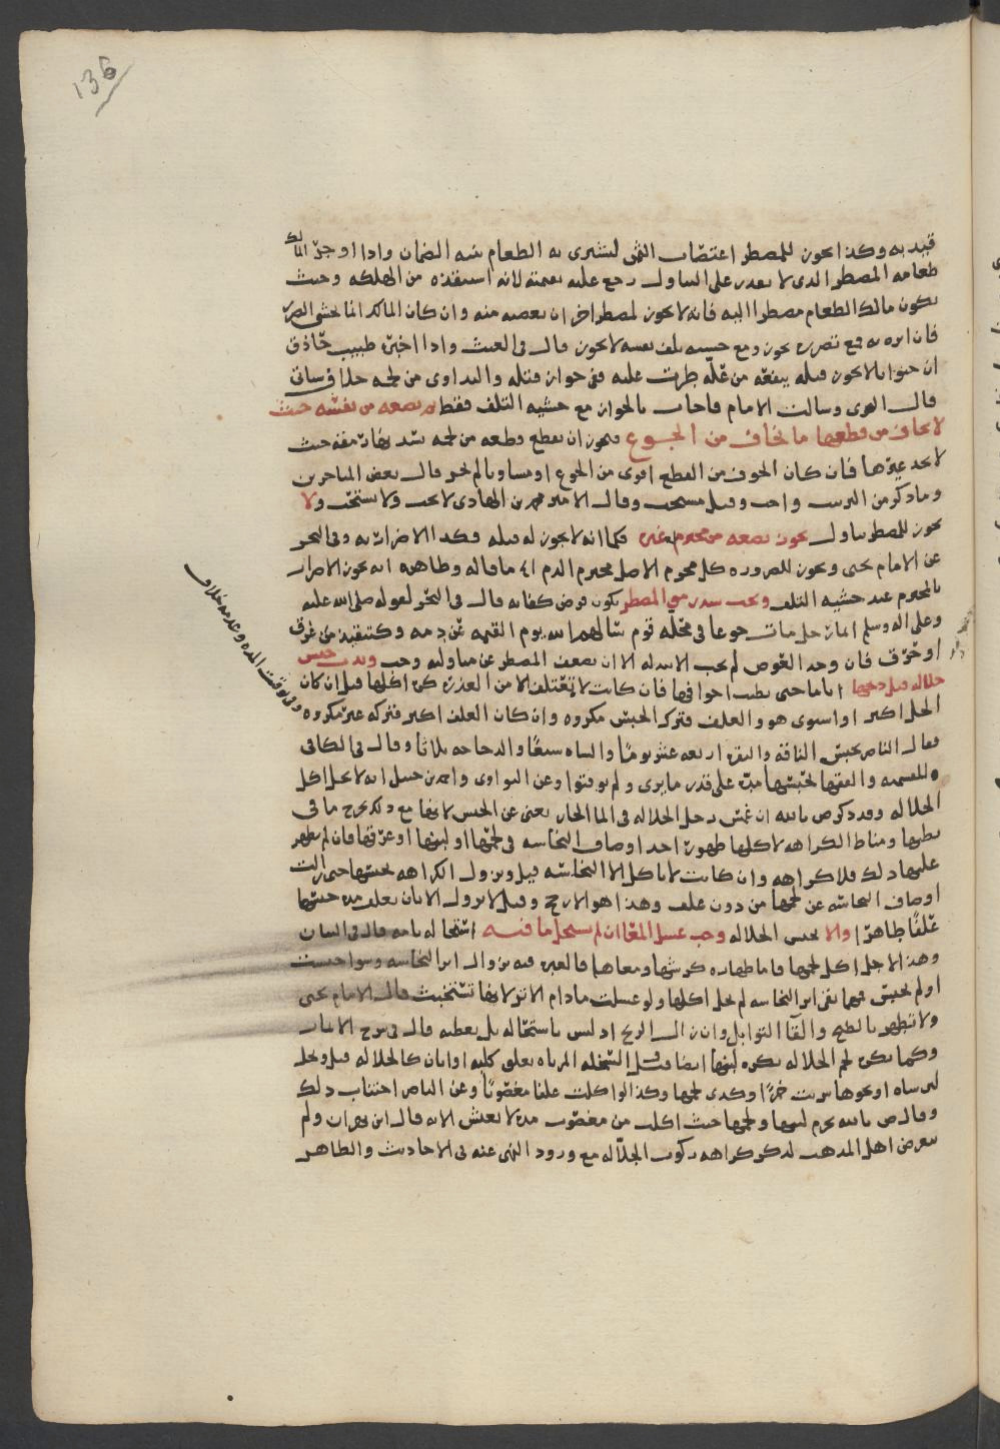 136
قيد به وكذا يجوز للمضطر اغتصاب الثمن ليشتري به الطعام بنية الضمان واذا اوجر المالك
طعامه المضطر الذي لا يقدر على التناول رجع عليه بقيمته لانه استنقذه من الهلكه وحيث
يكون مالك الطعام مضطرا اليه فانه لا يجوز لمضطر اخر ان يغصبه منه وان كان المالك انما يخشى الضرر
فان اثره به مع تضرره يجوز ومع خشيه تلف نفسه لا يجوز قال في الغيث واذا اخبر طبيب حاذق
ان حيوانا لا يجوز قتله ينفعه من علّه طرت عليه ففي جواز قتله والتداوي من لحمه خلاف ساتي
قال وسالت الامام فاجاب بالجواز مع خشيه التلف فقط بضعه من نفسه حيث
لا يخاف من قطعها ما يخاف من الجوع فيجوز ان يقطع قطعه من لحمه يسد بها رمقه حيث
لا يجد غيرها فان كان الخوف من القطع اقوى من الجوع او مساويا لم يجز قال بعض المتاخرين
وما ذكر من الترتيب واجب وقيل مستحب وقال الامير محمد بن الهادي لا يجب ولا يستحب ولا
يجوز للمضطر تناول بضعه من محترم غيره فكما انه لا يجوز له قتله فكذا الاضرار به وفي البحر
عن الامام يحيى ويجوز للضروره كل محرم الاصل محترم الدم ما قاله وظاهره انه يجوز الاضرار
بالمحترم عند خشيه التلف وندب سد رمق المضطر يكون فرض كفايه قال في البحر لقوله صلى الله عليه
وعلى اله وسلم ايما رجل مات جوعا في محلّه قوم سالهم الله يوم القيمه عن دمه وكمنقذ من غرق
او حرق فان وجد العوض لم يجب الا ببدله الا ان يضعف المضطر عن مناولته وجب وندب حبس
جلاله قبل ذبحها اياما حتى يطيب اجوافها فان كانت لا تعتلف الا من العذره كره اكلها قيل ان كان
الجل اكثر او استوى هو والعلف فترك الحبس مكروه وان كان العلف اكثر فتركه غير مكروه
وفي توقيت المده وعدمه خلاف
فقال الناصر يحبس الناقه والبقره اربعه عشر يومًا والشاه سبعًا والدجاجه ثلاثا وقال في الكافي
والفقها يحبسها مده على قدر ما يرى ولم يوقتوا وعن النواوي واحمد بن حنبل انه لا يحل اكل
الجلاله وقد ذكر ص بالله ان غمس رجل الجلاله في الما الحار يغني عن الحبس لانها مع ذلك يخرج ما في
بطنها ومناط الكراهه لاكلها ظهور احد اوصاف النجاسه في لحمها او لبنها او عرقها فان لم يظهر
عليها ذلك فلا كراهه وان كانت لا تاكل الا النجاسه قيل وتزول الكراهه بحبسها حتى زالت
اوصاف النجاسه عن لحمها من دون علف وهذا هو الارجح وقيل لا تزول الا بان تعلف مده حبسها
علفًا طاهرًا والا يحبس الجلاله وجب غسل المعا ان لم يستحل ما فيه استحاله تامه قال في البيان
وهذا لاجل اكل لحمها فاما طهاره كرشها ومعاها فالعبره فيه بزوال اثر النجاسه وسوا حبست
او لم يحبس فمهما بقي اثر النجاسه لم يحل اكلها ولو غسلت مادام الاثر لانها تستخبث قال الامام يحيى
ولا تطهر بالطبخ والقآ التوابل وان زال الريح اذ ليس باستحاله بل تغطيه قال في شرح الاثمار
وكما يكره لحم الجلاله يكره لبنها ايضا وقيل السخله المرباه بعلق كلبه او اتان كالجلاله قيل ويحل
لبن شاه او نحوها شربت خمرًا وكذى لحمها وكذا لو اكلت علفا مغصوبًا وعن الناصر اجتناب ذلك
وقال ص بالله يحرم لبنها ولحمها حيث اكلت من مغصوب مده لا تعيش الا به قال ابن بهران ولم
يتعرض اهل المذهب لذكر كراهه ركوب الجلّاله مع ورود النهي عنه في الاحاديث والظاهر